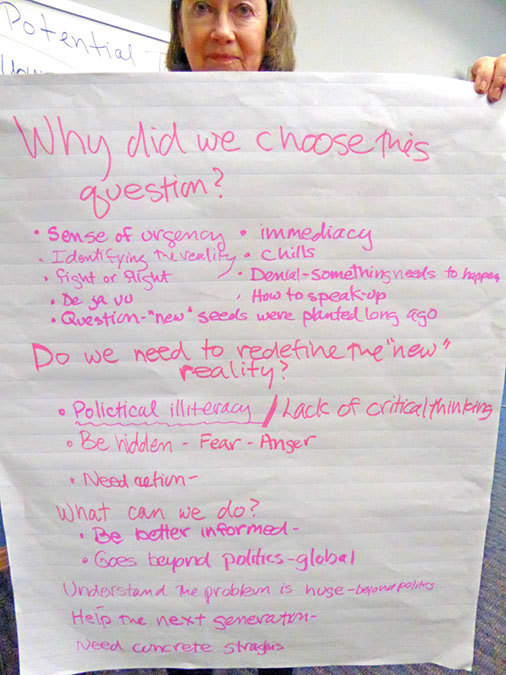 Potential
Why did we choose this
question?
• Sense of urgency • immediacy
• Identifying the reality • Chills
• Fight or flight • Denial-something needs to happen
• De ja vu • How to speak-up
• Question-"new" seeds were planted long ago
Do we need to redefine the "new"
reality?
• Polictical illiteracy / Lack of critical thinking
• Be hidden - Fear - Anger
• Need action-
What can we do?
• Be better informed-
• Goes beyond politics-global
Understand the problem is huge-beyond politics
Help the next generation-
Need concrete